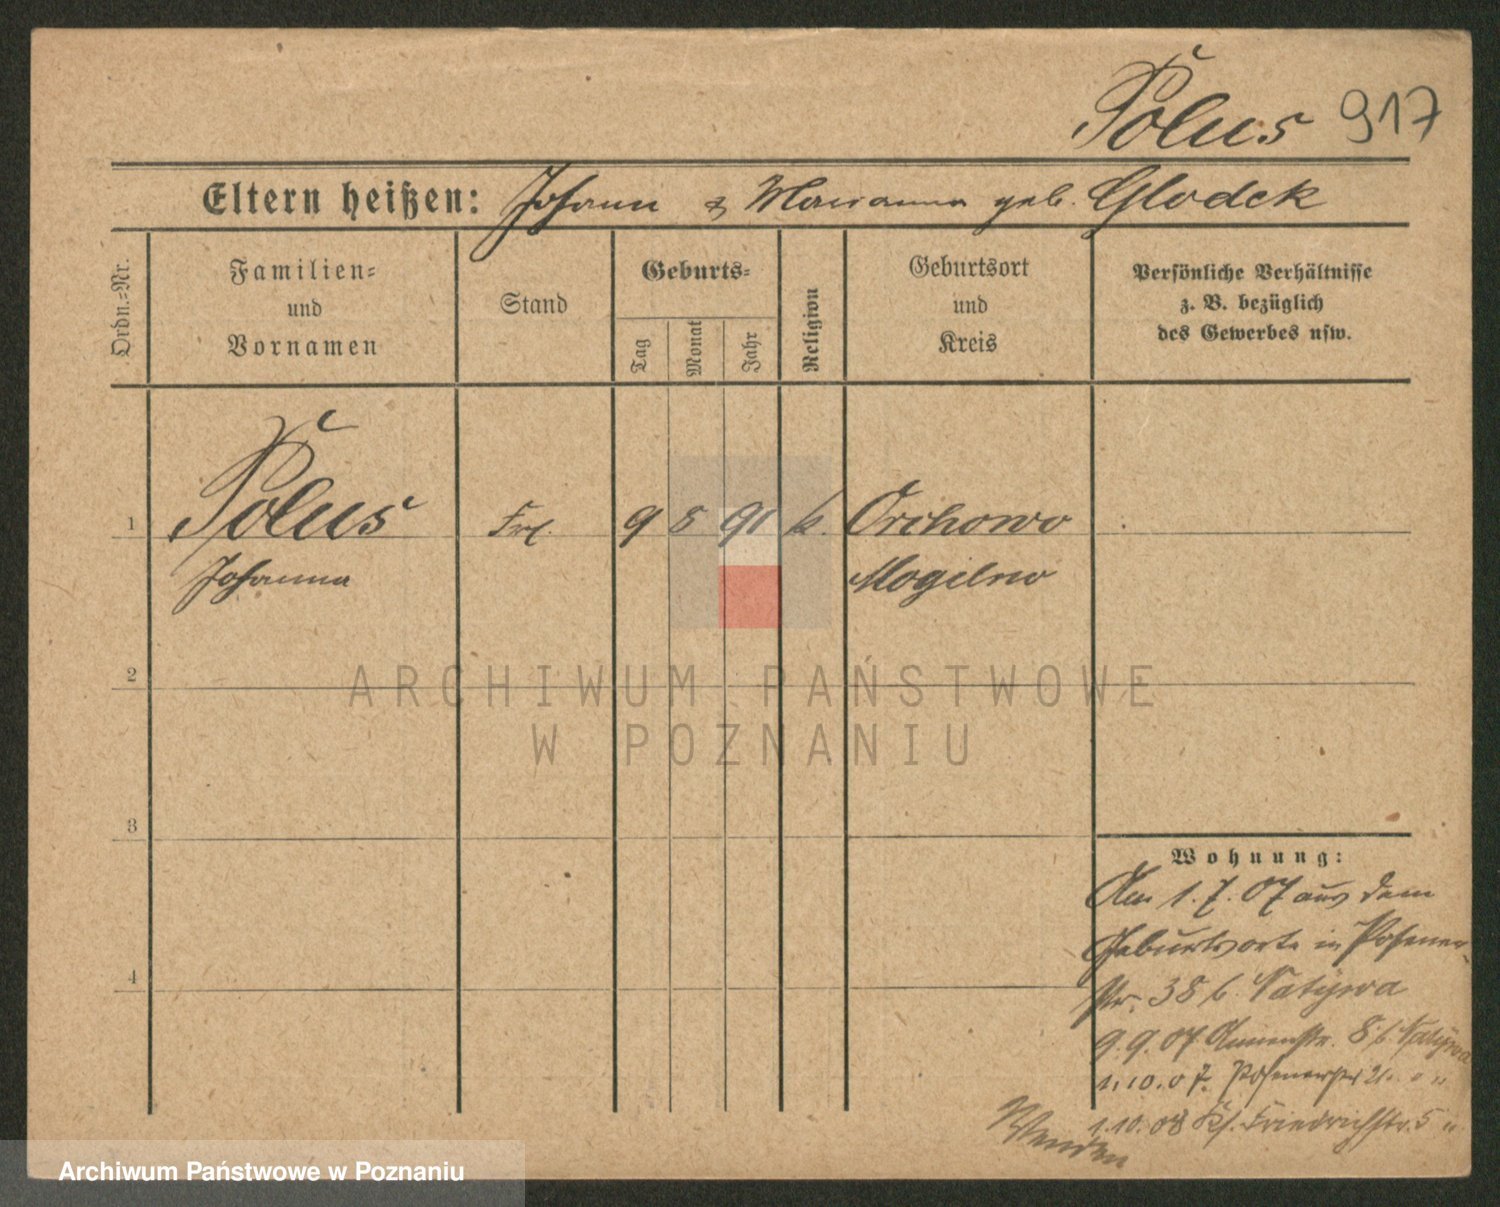 Polus 917
Eltern heißen: Johann & Marianna geb. Glodek
Ordn.=Nr.
Familien=
und
Vornamen
Stand
Geburts=
Tag
Monat
Jahr
Religion
Geburtsort
und
Kreis
Persönliche Verhältnisse
z. B. bezüglich
des Gewerbes usw.
1 Polus Frl. 9 8 91 k. Orchowo
Johanna Mogilno
2
ARCHIWUM PAŃSTWOWE
W POZNANIU
3
Wohnung:
Am 1.7.07 aus dem
Geburtsorte in Posener
str. 38 b. Ratajwa
4
9.9.07 8 b.
1.10.07. Posenerstr 21. " "
1.10.08 Kl. Friedrichstr. 5 "
Wenden
Archiwum Państwowe w Poznaniu